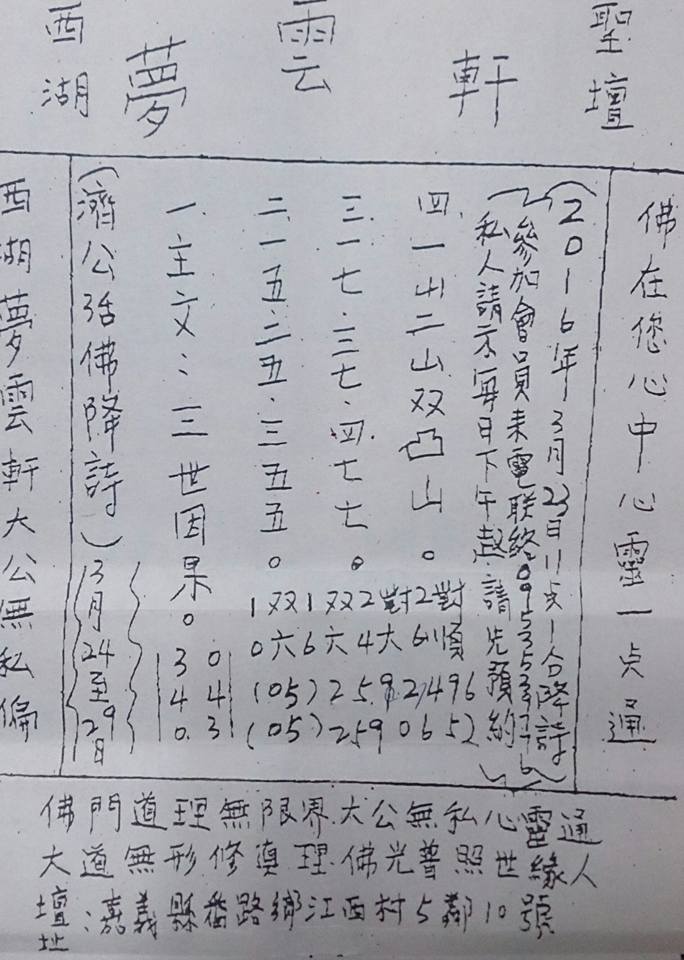 西湖 夢雲軒 聖壇
西湖夢雲軒大公無私偏
(濟公活佛降詩)
3月24至29日
一.主文:三世因果。
3 0
4 4
0 3
二.一五.二五.三五五。
三.一七.三七.四七七。
四.一山二山双凸山。
1双1双2對2對
0六6六4大6順
(05)2592496
(05)2590652
(2016年3月23日11点1分降詩)
參加會員来電联絡:
私人請示每日下午請先預約
佛在您心中心靈一点通
佛門道理無限界.大公無私心靈通
大道無形修真理.佛光普照世緣人
壇址:嘉義縣番路鄉江西村5鄰10號